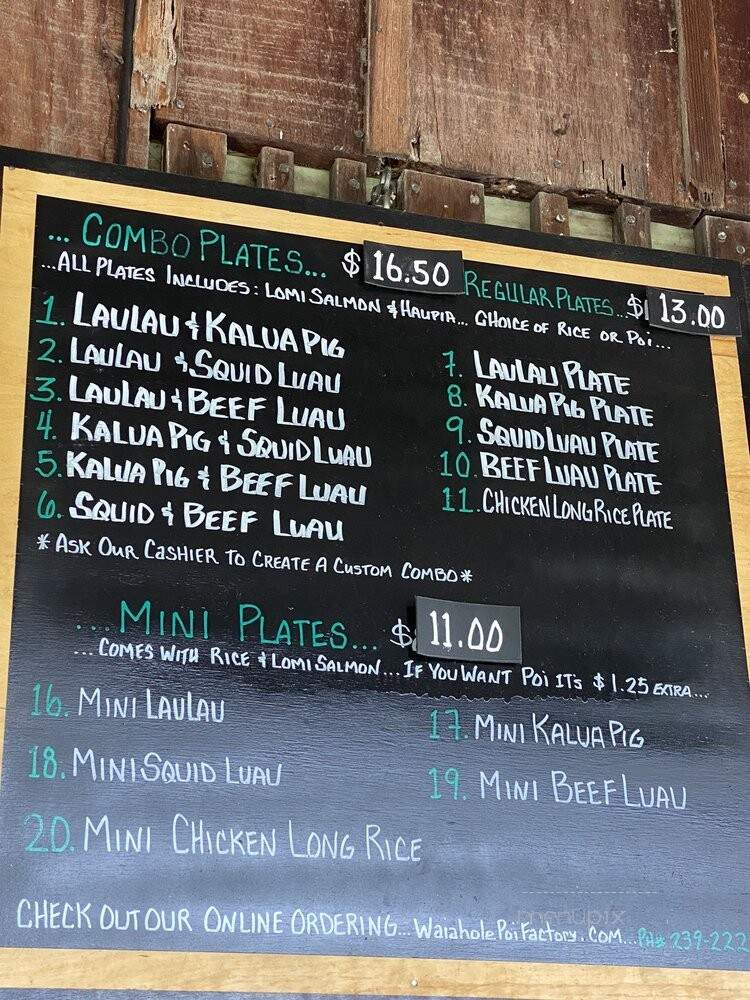 ... COMBO PLATES... $ 16.50
REGULAR PLATES... $ 13.00
...ALL PLATES INCLUDES: LOMI SALMON & HAUPIA... CHOICE OF RICE OR POI...
1. LAULAU & KALUA PIG
2. LAULAU & SQUID LUAU
3. LAULAU & BEEF LUAU
4. KALUA PIG & SQUID LUAU
5. KALUA PIG & BEEF LUAU
6. SQUID & BEEF LUAU
7. LAULAU PLATE
8. KALUA PIG PLATE
9. SQUID LUAU PLATE
10. BEEF LUAU PLATE
11. CHICKEN LONG RICE PLATE
*ASK OUR CASHIER TO CREATE A CUSTOM COMBO*
... MINI PLATES... $ 11.00
... COMES WITH RICE & LOMI SALMON... IF YOU WANT POI ITS $1.25 EXTRA...
16. MINI LAULAU
17. MINI KALUA PIG
18. MINI SQUID LUAU
19. MINI BEEF LUAU
20. MINI CHICKEN LONG RICE
menubix
CHECK OUT OUR ONLINE ORDERING... WaiaholePoiFactory.COM... PH# 239-222